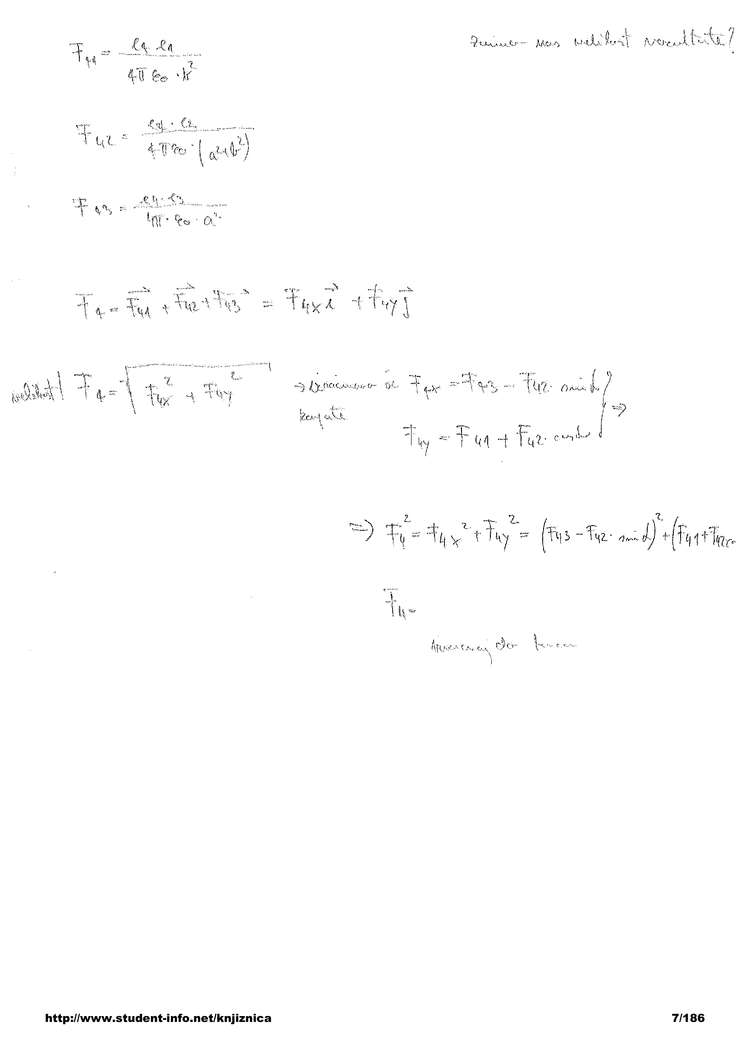 F₄₁ = e₄ e₁ / 4π ε₀ · b²
nas velikost rezultante?
F₄₂ = e₄ · e₂ / 4π ε₀ · (a² + b²)
F₄₃ = e₄ · e₃ / 4π · ε₀ · a²
F₄ = F⃗₄₁ + F⃗₄₂ + F⃗₄₃ = F₄ₓ i⃗ + F₄y j⃗
velikost! F₄ = √ F₄ₓ² + F₄y²
→ še F₄ₓ = F₄₃ − F₄₂ · sin α
F₄y = F₄₁ + F₄₂ · cos α } ⇒
⇒) F₄² = F₄ₓ² + F₄y² = (F₄₃ − F₄₂ · sin α)² + (F₄₁ + F₄₂ co
F₄ =
do konca
http://www.student-info.net/knjiznica
7/186